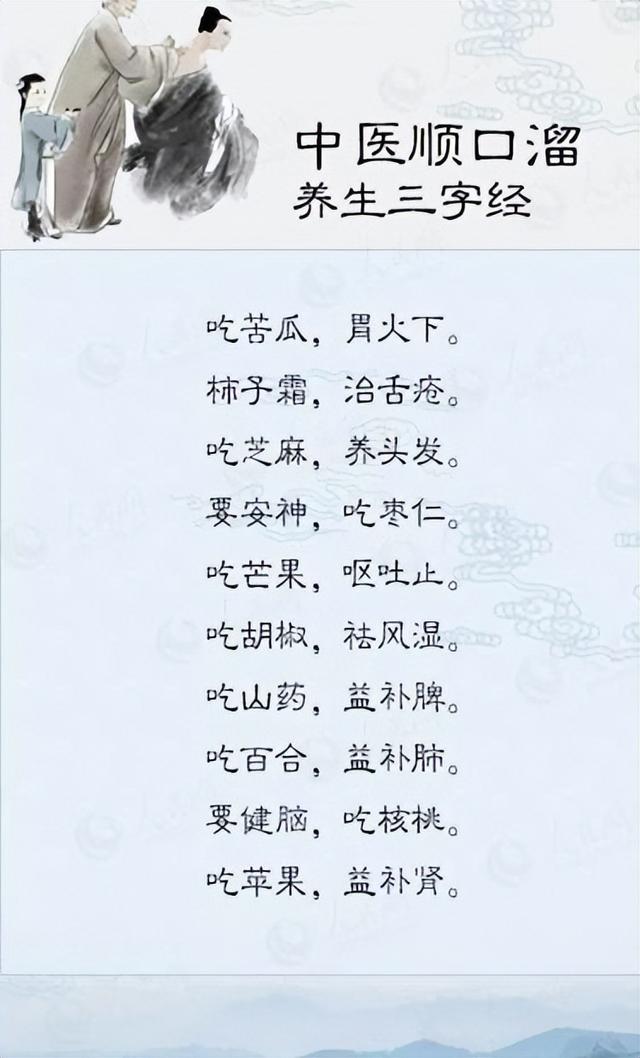 中医顺口溜
养生三字经
吃苦瓜，胃火下。
柿子霜，治舌疮。
吃芝麻，养头发。
要安神，吃枣仁。
吃芒果，呕吐止。
吃胡椒，祛风湿。
吃山药，益补脾。
吃百合，益补肺。
要健脑，吃核桃。
吃苹果，益补肾。